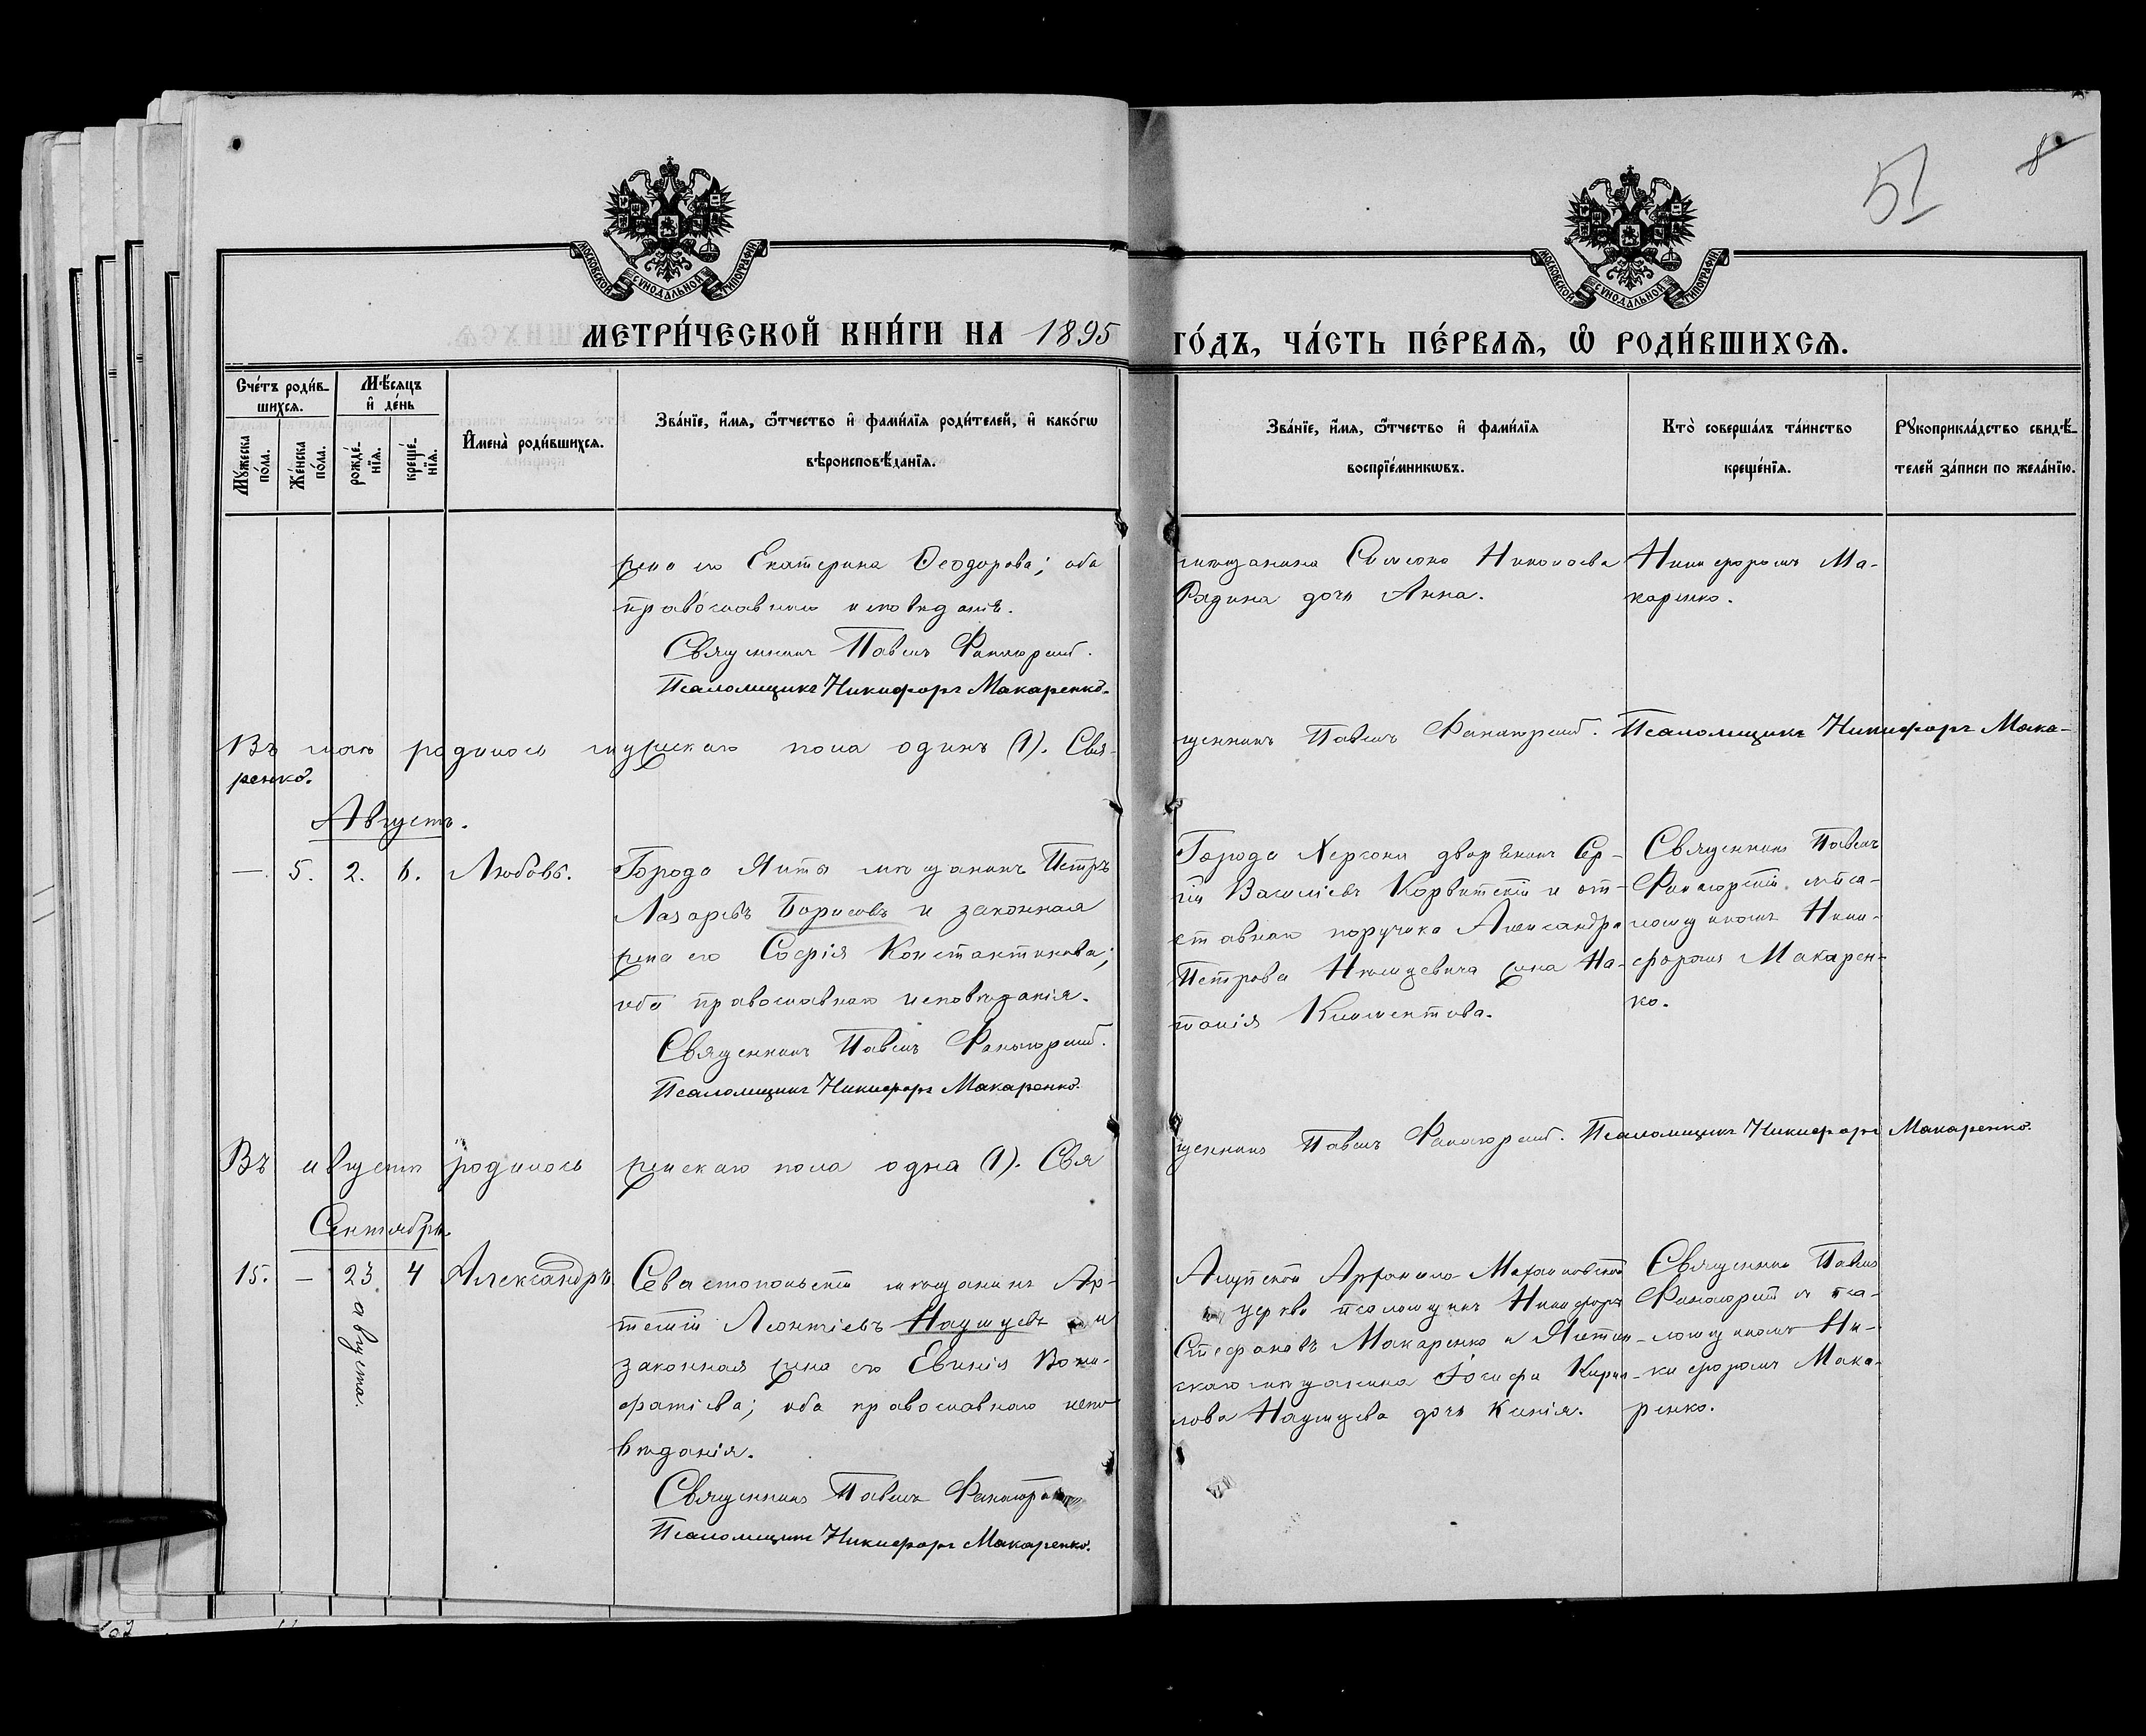 51
8
МОСКОВСКОЙ СѴНОДАЛЬНОЙ ТИПОГРАФІИ
МОСКОВСКОЙ СѴНОДАЛЬНОЙ ТИПОГРАФІИ
МЕТРИ́ЧЕСКОЙ КНИ́ГИ НА 1895 ГО́ДЪ, ЧА́СТЬ ПЕ́РВАѦ, Ѡ҆ РОДИ́ВШИХСѦ.
Сче́тъ роди́в-
шихсѧ.
Мѣ́сѧцъ
и҆ де́нь
Мꙋ́жеска
по́ла.
Же́нска
по́ла.
рожде́-
нїѧ.
креще́-
нїѧ.
И҆мена̀ роди́вшихсѧ.
Зва́нїе, и҆́мѧ, ѻ҆́тчество и҆ фами́лїѧ роди́телей, и҆ како́гѡ
вѣроисповѣ́данїѧ.
Зва́нїе, и҆́мѧ, ѻ҆́тчество и҆ фами́лїѧ
воспрїе́мникѡвъ.
Кто̀ соверша́лъ та́инство
креще́нїѧ.
Рꙋкоприкла́дство свидѣ́-
телей за́писи по жела́нїю.
жена его Екатерина Ѳеодорова; оба
православнаго исповѣданія.
Священникъ Павелъ
Псаломщикъ Никифоръ Макаренко.
мѣщанина Симеона Николаева
дочь Анна.
Никифоромъ Ма-
каренко.
Въ родилось мужескаго пола одинъ (1). Свя-
щенникъ Павелъ Псаломщикъ Никифоръ Мака-
ренко.
Августъ.
—. 5. 2. 6. Любовь.
Города Ялты мѣщанинъ Петръ
Лазаревъ Борисовъ и законная
жена его Софія Константинова;
оба православнаго исповѣданія.
Священникъ Павелъ
Псаломщикъ Никифоръ Макаренко.
Города Херсона дворянин Сер-
гій Василіевъ и от-
ставнаго поручика Александра
Петрова жена На-
талія Климентова.
Священник Павелъ
съ пса-
ломщикомъ Ники-
форомъ Макарен-
ко.
Въ августѣ родилось женскаго пола одна (1). Свя
щенникъ Павелъ Псаломщикъ Никифоръ Макаренко.
Сентябрь.
15. — 23 августа. 4 Александръ.
Севастопольскій мѣщанинъ Ар-
темій Леонтіевъ и
законная жена его Евгенія Вони-
фатіева; оба православнаго испо
вѣданія.
Священникъ Павелъ
Псаломщикъ Никифоръ Макаренко.
Алупкской Архангело-Михайловской
церкви псаломщикъ Никифоръ
Стефановъ Макаренко и Ялтин-
скаго мѣщанина Іосифа Кирил-
лова дочь Ксенія.
Священник Павелъ
съ пса-
ломщикомъ Ни-
кифоромъ Мака-
ренко.